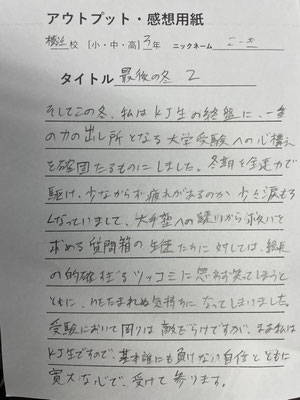 アウトプット・感想用紙
横浜校 [小・中・高] 3年 ニックネーム こーき
タイトル 最後の冬 2
そしてこの冬、私はKJ生の終盤に、一番
の力の出し所となる大学受験への心構え
を確固たるものにしました。冬期を全速力で
駆け、少なからず疲れがあるのか 少々涙もろ
くなっていまして、大手塾への からか救いを
求める質問箱の生徒たちに対しては、塾長
の的確すぎるツッコミに思わず笑ってしまうと
ともに、いたたまれぬ気持ちになってしまいました。
受験において周りは敵だらけですが、まぁ私は
KJ生ですので、基本誰にも負けない自信とともに
寛大な心で、受けて参ります。